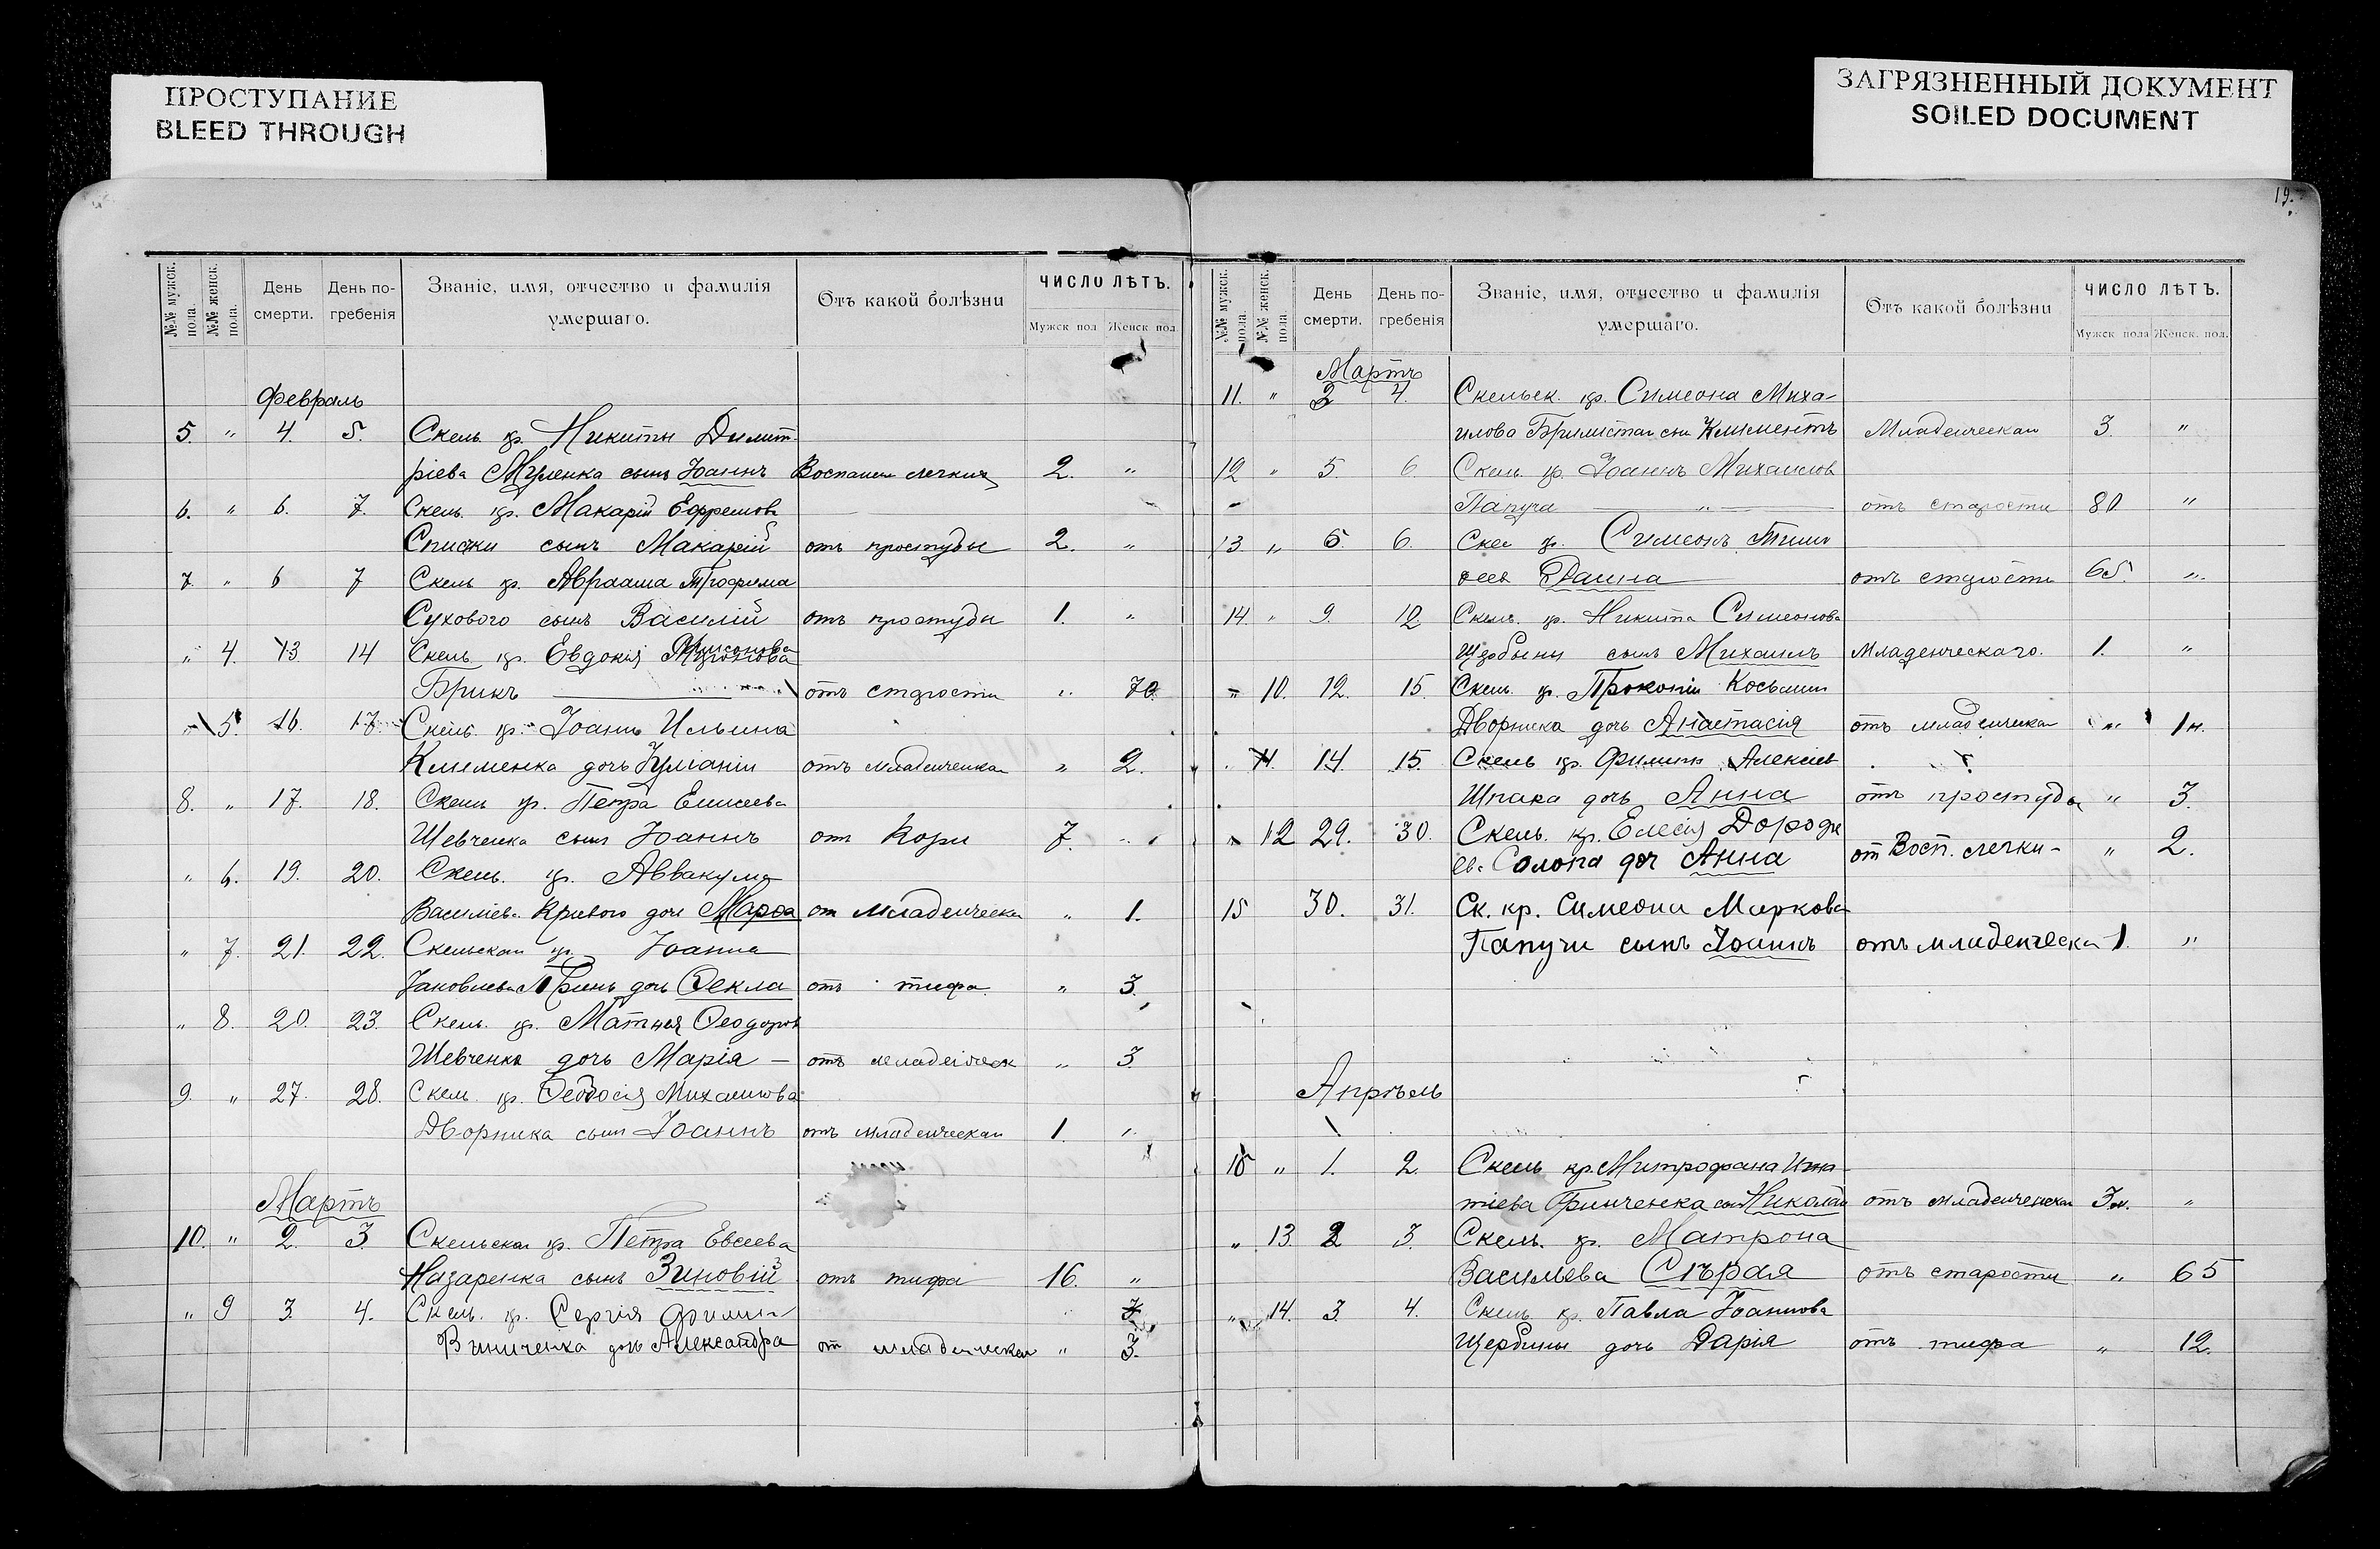 ПРОСТУПАНИЕ
BLEED THROUGH
ЗАГРЯЗНЕННЫЙ ДОКУМЕНТ
SOILED DOCUMENT
19.
№№ мужск. пола.
№№ женск. пола.
День смерти.
День по-гребенія
Званіе, имя, отчество и фамилія умершаго.
Отъ какой болѣзни
ЧИСЛО ЛѢТЪ.
Мужск пол Женск пол.
Февраль
5 " 4. 5. Скель. кр. Никиты Димит-
ріева Муленка сынъ Іоаннъ Воспален легкихъ 2. "
6. " 6. 7. Скель. кр. Макарій Ефремовъ
сынъ Макарій отъ простуды 2. "
7. " 6 7 Скель кр. Авраама Трофима
Сухового сынъ Василій отъ простуды 1. "
" 4. 13 14 Скель кр. Евдокія
Брикъ отъ старости " 70.
" 5. 16. 17. Скель. кр. Іоанъ Ильина
Клименка дочь Іуліанія отъ младенческая " 2.
8. " 17. 18. Скель кр. Петра Елисеева
Шевченка сынъ Іоаннъ отъ Кори 7. "
" 6. 19. 20. Скель. кр. Аввакума
Василіева Кривого доч Марѳа от Младенческа " 1.
" 7. 21. 22. Скельская кр. Іоанна
Іаковлева Гринь дочь Ѳекла отъ тифа " 3.
" 8. 20. 23. Скель. кр. Матѳея Ѳеодоров
Шевченка дочь Марія — отъ младенческ " 3.
9. " 27. 28. Скель кр. Ѳеодосія Михаилова
Дворника сынъ Іоаннъ отъ младенческая 1. "
Мартъ
10. " 2. 3. Скельская кр. Петра Евсеева
Назаренка сынъ Зиновій отъ тифа 16. "
" 9 3. 4. Скель. кр. Сергія Филип
Виниченка дочь Александра от младенческая " 3.
№№ мужск. пола.
№№ женск. пола.
День смерти.
День по-гребенія
Званіе, имя, отчество и фамилія умершаго.
Отъ какой болѣзни
ЧИСЛО ЛѢТЪ.
Мужск пола Женск. пол.
Мартъ
11. " 2 4. Скельск. кр. Симеона Миха-
илова сын Климентъ Младенческая 3. "
12 " 5. 6. Скель. кр. Іоаннъ Михаилов
Папуча " отъ старости 80. "
13. " 5. 6. Скел кр. Симеонъ Тимо
ѳеев отъ старости 65. "
14. " 9. 12. Скель. кр. Никита Симеонова
сынъ Михаилъ Младенческаго. 1. "
" 10. 12. 15. Скель кр. Прокопія Косьмин
Дворника дочь Анастасія отъ младенческая " 1н.
11. 14. 15. Скель кр. Филипп Алексіев
Шпака дочь Анна отъ простуды " 3.
" 12 29. 30. Скель. кр. Елесія Дороѳе
ев. Солопа доч Анна от Восп. легки- " 2.
15 30. 31. Ск. кр. Симеона Маркова
Папучи сынъ Іоаннъ отъ младенческа 1. "
Апрѣль
16 " 1. 2. Скель кр. Митрофана Игна
тіева Гринченка сын Николай отъ младенческая 3м. "
" 13. 2 3. Скель. кр. Матрона
Василіева Сѣрая отъ старости " 65
" 14. 3. 4. Скель кр. Павла Іоаннова
Щербины дочь Дарія отъ тифа " 12.